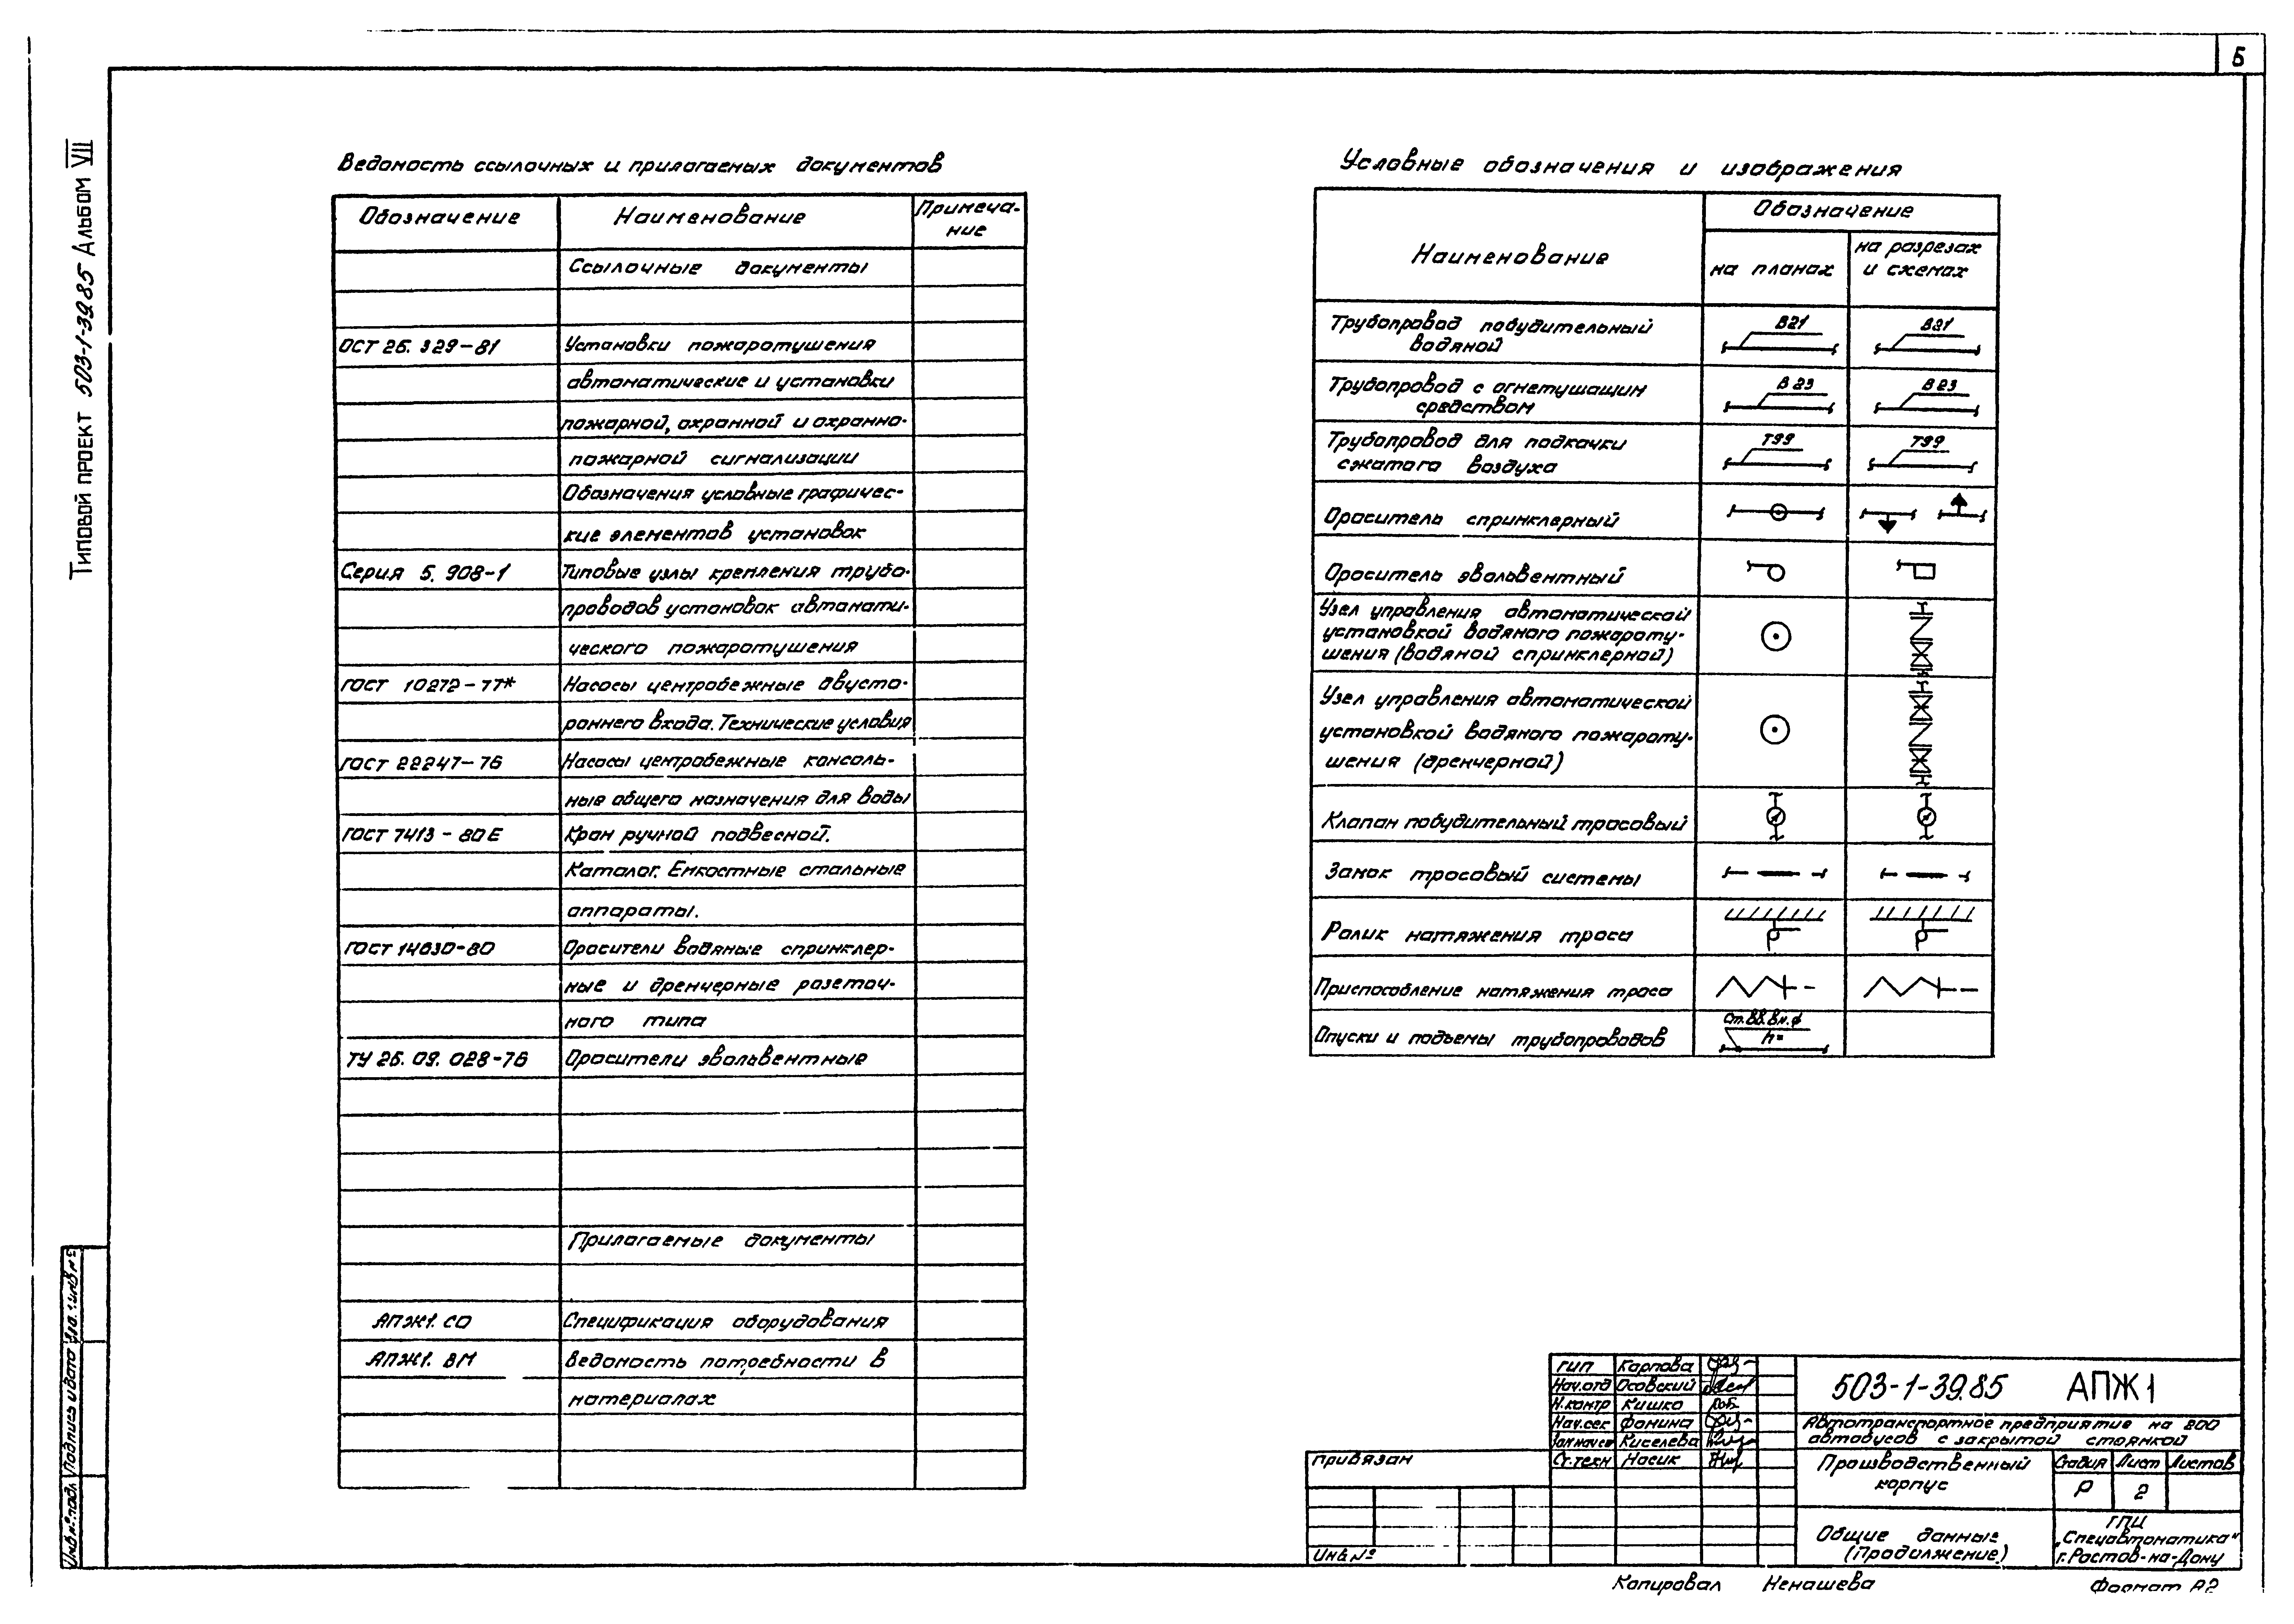 5
Типовой проект 503-1-39.85 Альбом VII
Ведомость ссылочных и прилагаемых документов
Обозначение Наименование Примеча-
ние
Ссылочные документы
ОСТ 25. 329-81 Установки пожаротушения
автоматические и установки
пожарной, охранной и охранно-
пожарной сигнализации
Обозначения условные графичес-
кие элементов установок
Серия 5. 908-1 Типовые узлы крепления трубо-
проводов установок автомати-
ческого пожаротушения
ГОСТ 10272-77* Насосы центробежные двусто-
роннего входа. Технические условия
ГОСТ 22247-76 Насосы центробежные консоль-
ные общего назначения для воды
ГОСТ 7413-80Е Кран ручной подвесной.
Каталог. Емкостные стальные
аппараты.
ГОСТ 14630-80 Оросители водяные спринклер-
ные и дренчерные розеточ-
ного типа
ТУ 25. 09. 028-76 Оросители эвольвентные
Прилагаемые документы
АПЖ1. СО Спецификация оборудования
АПЖ1. ВМ Ведомость потребности в
материалах
Условные обозначения и изображения
Наименование Обозначение
на планах на разрезах
и схемах
Трубопровод побудительный
водяной
В21 В21
Трубопровод с огнетушащим
средством
В23 В23
Трубопровод для подкачки
сжатого воздуха
Т99 Т99
Ороситель спринклерный
Ороситель эвольвентный
Узел управления автоматической
установкой водяного пожароту-
шения (водяной спринклерной)
Узел управления автоматической
установкой водяного пожароту-
шения (дренчерной)
Клапан побудительный тросовый
Замок тросовый системы
Ролик натяжения троса
Приспособление натяжения троса
Опуски и подъемы трубопроводов
От.В8.Вм.ф
h=
ГИП Карпова
Нач.отд Осовский
Н.контр Кишко
Нач.сек Фонина
Киселева
Ст.техн Носик
503-1-39.85 АПЖ1
Автотранспортное предприятие на 200
автобусов с закрытой стоянкой
Производственный
корпус
Стадия Лист Листов
Р 2
Общие данные
(Продолжение)
ГПИ
„Спецавтоматика"
г. Ростов-на-Дону
Привязан
Инв №
Инв № подл Подпись и дата Взам. инв №
Копировал Ненашева
Формат А2